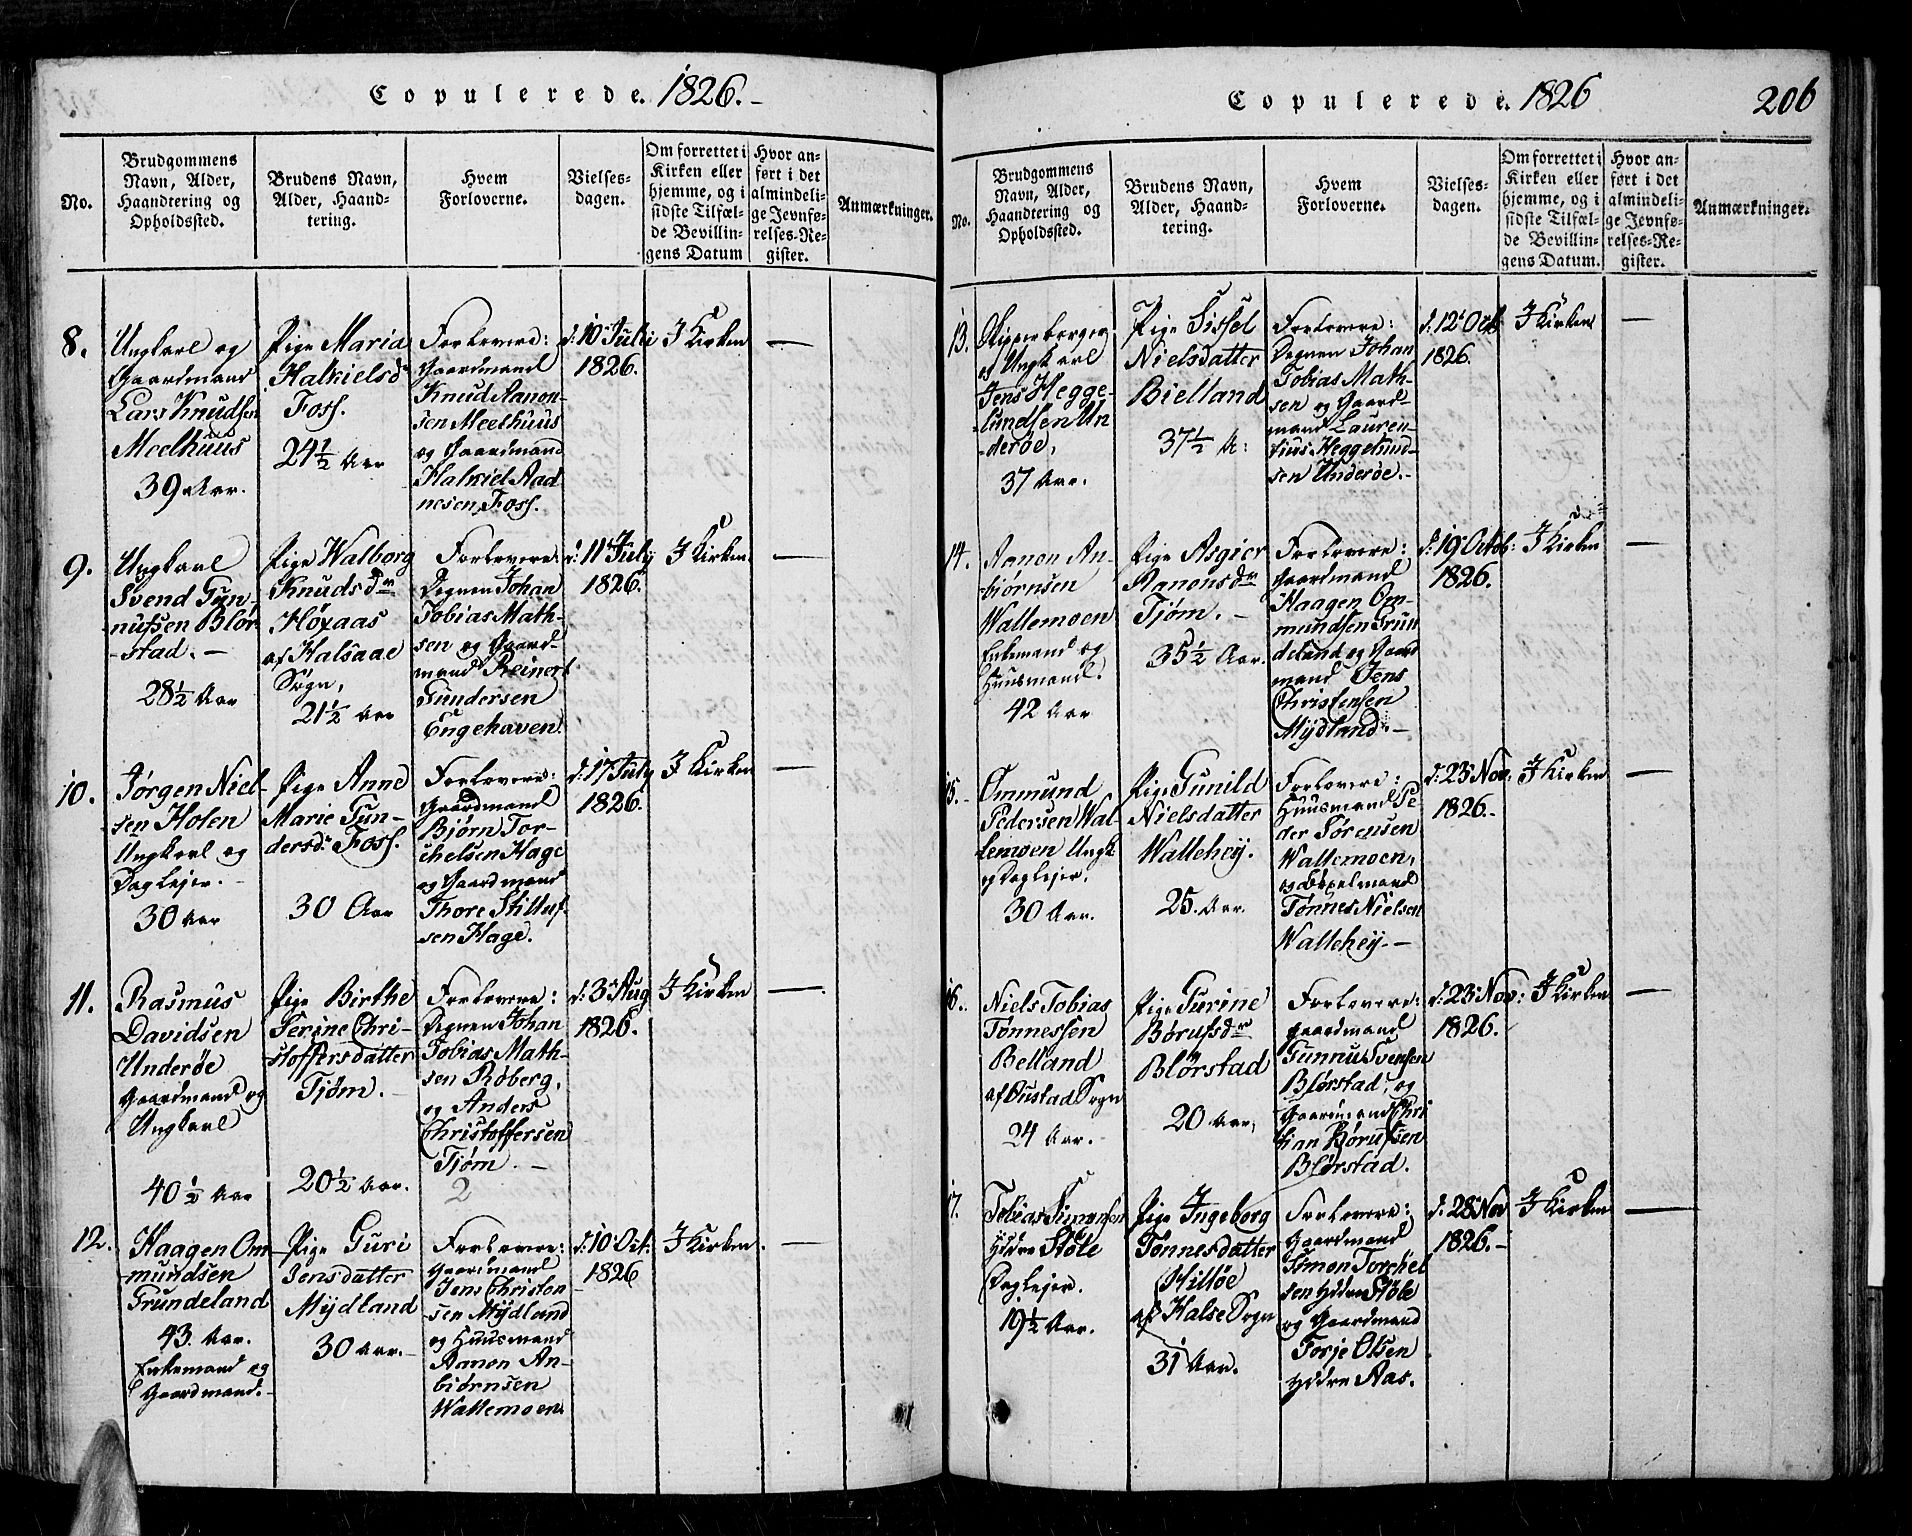 Copulerede. 1826.-
No.
Brudgommens
Navn, Alder,
Haandtering og
Opholdssted.
Brudens Navn,
Alder, Haand-
tering.
Hvem
Forloverne.
Vielses-
dagen.
Om forrettet i
Kirken eller
hjemme, og i
sidste Tilfæl-
de Bevillin-
gens Datum
Hvor an-
ført i det
almindeli-
ge Jevnfø-
relses-Re-
gister.
Anmærkninger.
8.
Ungkarl og
Gaardmand
Lars Knudsen
Meelhuus
39 Aar.
Pige Maria
Halkielsd
Foss.
24½ Aar
Forlovere:
Gaardmand
Knud Aanon-
sen Meelhuus
og Gaardmand
Halkiel Aad
nesen, Foss.
d: 10 Juli
1826.
I Kirken
9.
Ungkarl
Svend Gun-
nufsen Blør-
stad. -
28½ Aar
Pige Walborg
Knudsdr
Høxaas
af Halsaae
Sogn,
21½ Aar
Forlovere
Degnen Johan
Tobias Math-
sen og Gaard-
mand Reinert
Gundersen
Engehaven.
d: 11 July
1826.
I Kirken
10.
Jørgen Niel-
sen Holen
Ungkarl og
Daglejer. -
30 Aar
Pige Anne
Marie Gun-
dersd: Foss.
30 Aar
Forlovere:
Gaardmand
Bjørn Tor-
chelsen Hage
og Gaardmand
Thore Stilluf-
sen Hage.
d: 17 July
1826.
I Kirken
11.
Rasmus
Davidsen
Underøe
Gaardmand og
Ungkarl
40½ Aar
Pige Birthe
Serine Chri-
stoffersdatter
Tjøm. -
20½ Aar.
Forlovere:
Degnen Johan
Tobias Math-
sen Røberg,
og Anders
Christoffersen
Tjøm. -
2
d: 3 Aug
1826.
I Kirken
12.
Haagen Om-
mundsen
Grundeland
43. Aar.
Enkemand og
Gaardmand. -
Pige Guri
Jensdatter
Mydland
30 Aar. -
Forlovere:
Gaardmand
Jens Christen-
sen Mydland
og Huusmand
Aanon An-
biørnsen
Wallemoen
d: 10 Oct:
1826
I Kirken.
Copulerede. 1826
206
No.
Brudgommens
Navn, Alder,
Haandtering og
Opholdssted.
Brudens Navn,
Alder, Haand-
tering.
Hvem
Forloverne.
Vielses-
dagen.
Om forrettet i
Kirken eller
hjemme, og i
sidste Tilfæl-
de Bevillin-
gens Datum.
Hvor an-
ført i det
almindeli-
ge Jevnfø-
relses-Re-
gister.
Anmærkninger.
13.
Skipperborger
og Ungkarl
Jens Hegge-
lundsen Un
derøe,
37 Aar.
Pige Sissel
Nielsdatter
Bielland
37½ A:
Forlovere:
Degnen Johan
Tobias Math-
sen og Gaard-
mand Lauren-
tius Heggelund-
sen Underøe. -
d: 12 Oct
1826.
I Kirken
14.
Aanon An-
biørnsen
Wallemoen
Enkemand og
Huusmand.
42 Aar
Pige Asgier
Aanonsdr
Tjøm. -
35½ Aar.
Forlovere:
Gaardmand
Haagen Om-
mundsen Grun
deland og Gaard
mand Jens
Christensen
Mydland. -
d: 19 Octob:
1826.
I Kirken
15. -
Ommund
Pedersen Wal-
lemoen Ungk
og Daglejer.
30 Aar.
Pige Gunild
Nielsdatter
Wallehey.
25. Aar.
Forlovere:
Huusmand Pe-
der Sørensen
Wallemoen,
Tønnes Nielsen
Wallehey. -
d: 23 Nov.
1826. -
I Kirken
16.
Niels Tobias
Tønnessen
Belland
af Oustad Sogn
24 Aar.
Pige Gurine
Børufsdr
Blørstad
20 Aar,
Forlovere:
Gaardmand
Gunnu Svensen
Blørstad, og
Gaardmand Chri
tian Børufsen
Blørstad.
d: 23 Nov:
1826.
I Kirken
17.
Tobias Simonsen
Ydre Støle
Daglejer.
19½ Aar.
Pige Ingeborg
Tønnesdatter
Hilløe
af Halse Sogn
31 Aar.
Forlovere:
Gaardmand
Simon Torchel
sen Ydre Støle
og Gaardmand
Torje Olsen
Ydre Aas.
d: 28 Nov
1826. -
I Kirken